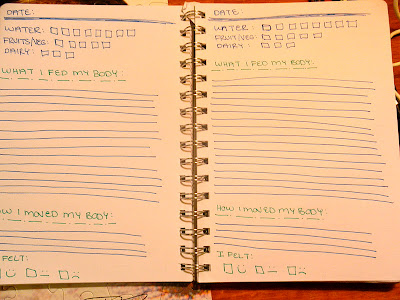 DATE:
WATER:
FRUITS/VEG:
DAIRY:
WHAT I FED MY BODY:
OW I MOVED MY BODY:
FELT:
DATE:
WATER:
FRUITS/VEG:
DAIRY:
WHAT I FED MY BODY:
HOW I MOVED MY BODY:
I FELT: